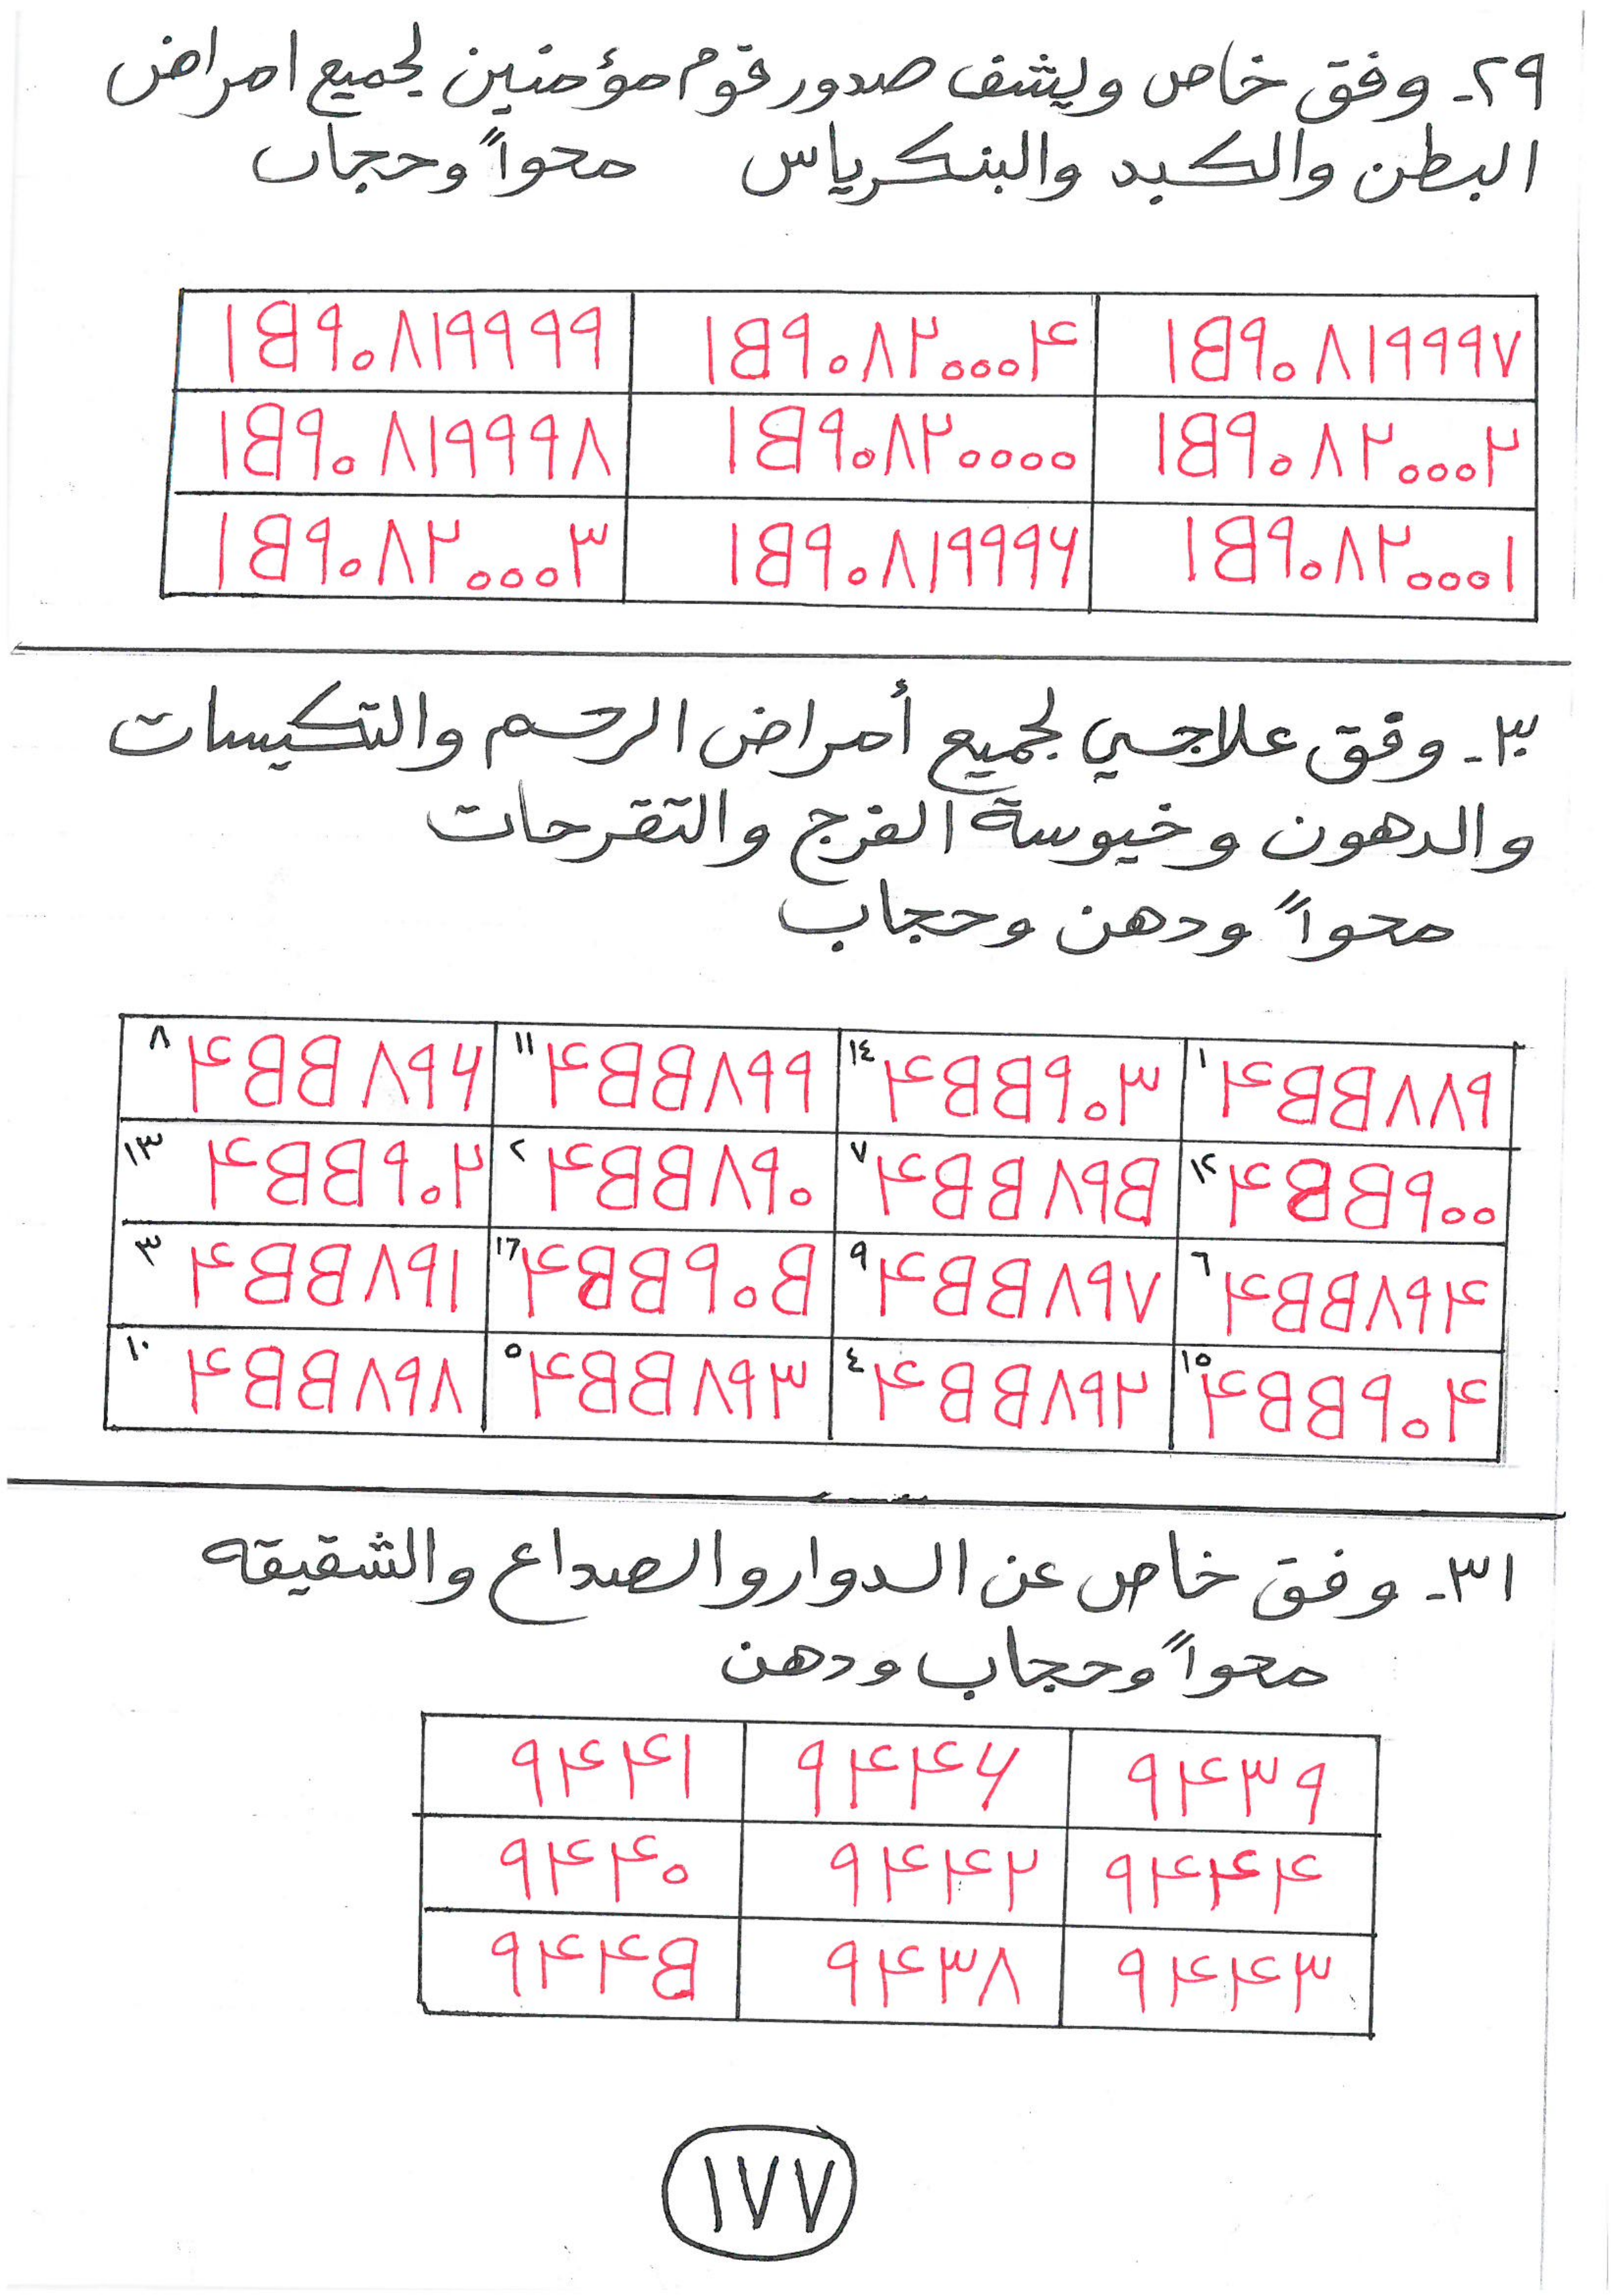 ٢٩ـ وفق خاص ويشف صدور قوم مؤمنين لجميع امراض
البطن والكبد والبنكرياس محواً وحجاب
١٥٩٠٨١٩٩٩٧ ١٥٩٠٨٢٠٠٠٤ ١٥٩٠٨١٩٩٩٩
١٥٩٠٨٢٠٠٠٢ ١٥٩٠٨٢٠٠٠٠ ١٥٩٠٨١٩٩٩٨
١٥٩٠٨٢٠٠٠١ ١٥٩٠٨١٩٩٩٦ ١٥٩٠٨٢٠٠٠٣
٣٠ـ وفق علاجي لجميع أمراض الرحم والتكيسات
والدهون وخيوسة الفرج والتقرحات
محواً ودهن وحجاب
١ ٤٥٥٨٨٩ ١٤ ٤٥٥٩٠٣ ١١ ٤٥٥٨٩٩ ٨ ٤٥٥٨٩٦
١٢ ٤٥٥٩٠٠ ٧ ٤٥٥٨٩٥ ٢ ٤٥٥٨٩٠ ١٣ ٤٥٥٩٠٢
٦ ٤٥٥٨٩٤ ٩ ٤٥٥٨٩٧ ١٦ ٤٥٥٩٠٥ ٣ ٤٥٥٨٩١
١٥ ٤٥٥٩٠٤ ٤ ٤٥٥٨٩٢ ٥ ٤٥٥٨٩٣ ١٠ ٤٥٥٨٩٨
٣١ـ وفق خاص عن الدوار والصداع والشقيقه
محواً وحجاب ودهن
٩٤٣٩ ٩٤٤٦ ٩٤٤١
٩٤٤٤ ٩٤٤٢ ٩٤٤٠
٩٤٤٣ ٩٤٣٨ ٩٤٤٥
١٧٧